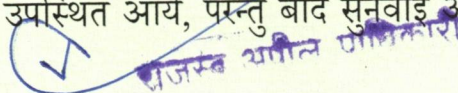 उपस्थित आये, परन्तु बाद सुनवाई
राजस्व अपील प्राधिकारी